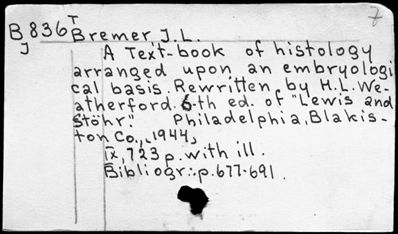 7
B836 T Bremer J.L.
J
A Text-book of histology
arranged upon an embryologi
cal basis. Rewritten by H.L. We-
atherford. 6-th ed. of "Lewis and
Stöhr". Philadelphia, Blakis-
ton Co., 1944,
IX, 723 p. with ill.
Bibliogr.: p. 677-691.